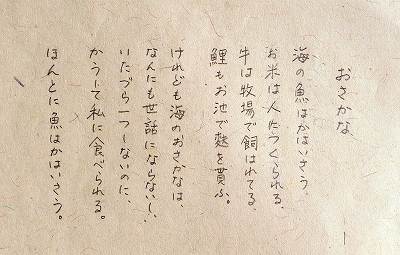 おさかな
海の魚はかはいさう、
お米は人につくられる、
牛は牧場で飼はれてる、
鯉もお池で麩を貰ふ。
けれども海のおさかなは、
なんにも世話にならないし、
いたづら一つしないのに、
かうして私に食べられる。
ほんとに魚はかはいさう。